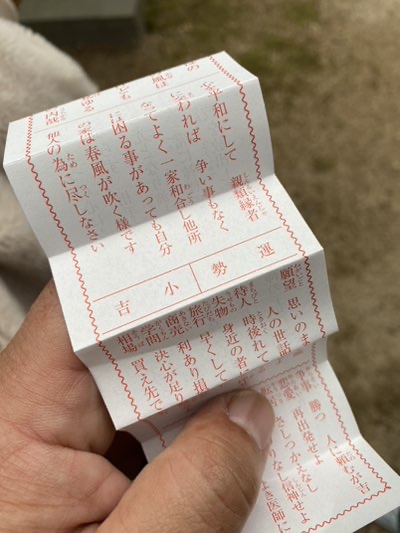 平和にして 親類縁者
われば 争い事もなく
てよく一家和合し他所
に困る事があっても自分
の家は春風が吹く様です
他の為に尽しなさい
運勢
小吉
願望 思いのま
人の世話
待人 時後れて
失物 身近の者
旅行 早くして
商売 利あり損
学問 決心が足り
相場 買え先で
事 勝つ 人に頼むが吉
恋愛 再出発せよ
さしつかえなし
りなし信神せよ
き医師に